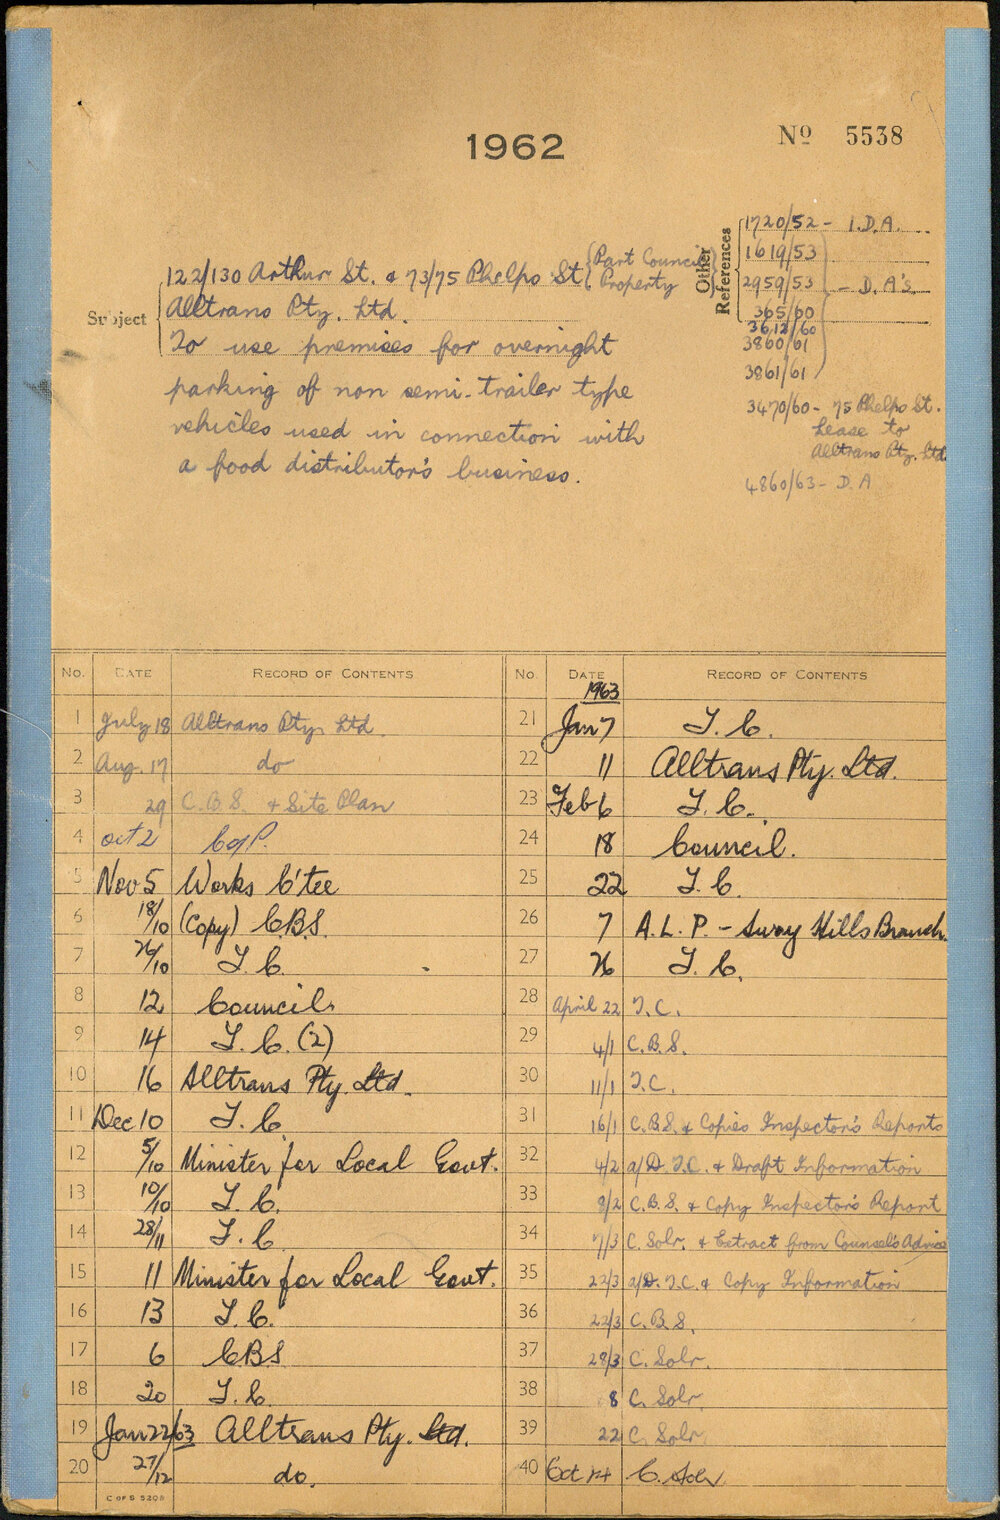 1962
Nº 5538
Other References
1720/52 - I.D.A.
1619/53
2959/53 - D.A's.
365/60
3612/60
3860/61
3861/61
3470/60 - 75 Phelps St.
Lease to
Alltrans Pty. Ltd
4860/63 - D.A
Subject
122/130 Arthur St. & 73/75 Phelps St. {Part Council
Property
Alltrans Pty. Ltd.
To use premises for overnight
parking of non semi-trailer type
vehicles used in connection with
a food distributor's business.
No. DATE RECORD OF CONTENTS
1 July 18 Alltrans Pty. Ltd.
2 Aug. 17 do
3 29 C.B.S. & Site Plan
4 Oct 2 C of P.
5 Nov 5 Works C'tee
6 18/10 (Copy) C.B.S.
7 26/10 T.C.
8 12 Council.
9 14 T.C. (2)
10 16 Alltrans Pty. Ltd.
11 Dec 10 T.C.
12 5/10 Minister for Local Govt.
13 10/10 T.C.
14 28/11 T.C.
15 11 Minister for Local Govt.
16 13 T.C.
17 6 CBS
18 20 T.C.
19 Jan 22/63 Alltrans Pty. Ltd.
20 27/12 do.
C OF S 5208
No. DATE RECORD OF CONTENTS
1963
21 Jan 7 T.C.
22 11 Alltrans Pty. Ltd.
23 Feb 6 T.C.
24 18 Council.
25 22 T.C.
26 7 A.L.P. - Surry Hills Branch.
27 26 T.C.
28 April 22 T.C.
29 4/1 C.B.S.
30 11/1 T.C.
31 16/1 C.B.S. & Copies Inspector's Reports
32 4/2 a/D.T.C. & Draft Information
33 8/2 C.B.S. & Copy Inspector's Report
34 7/3 C. Solr. & Extract from Counsel's Advice
35 22/3 a/D.T.C. & Copy Information
36 22/3 C.B.S.
37 28/3 C. Solr.
38 8 C. Solr.
39 22 C. Solr.
40 Oct 14 C. Solr